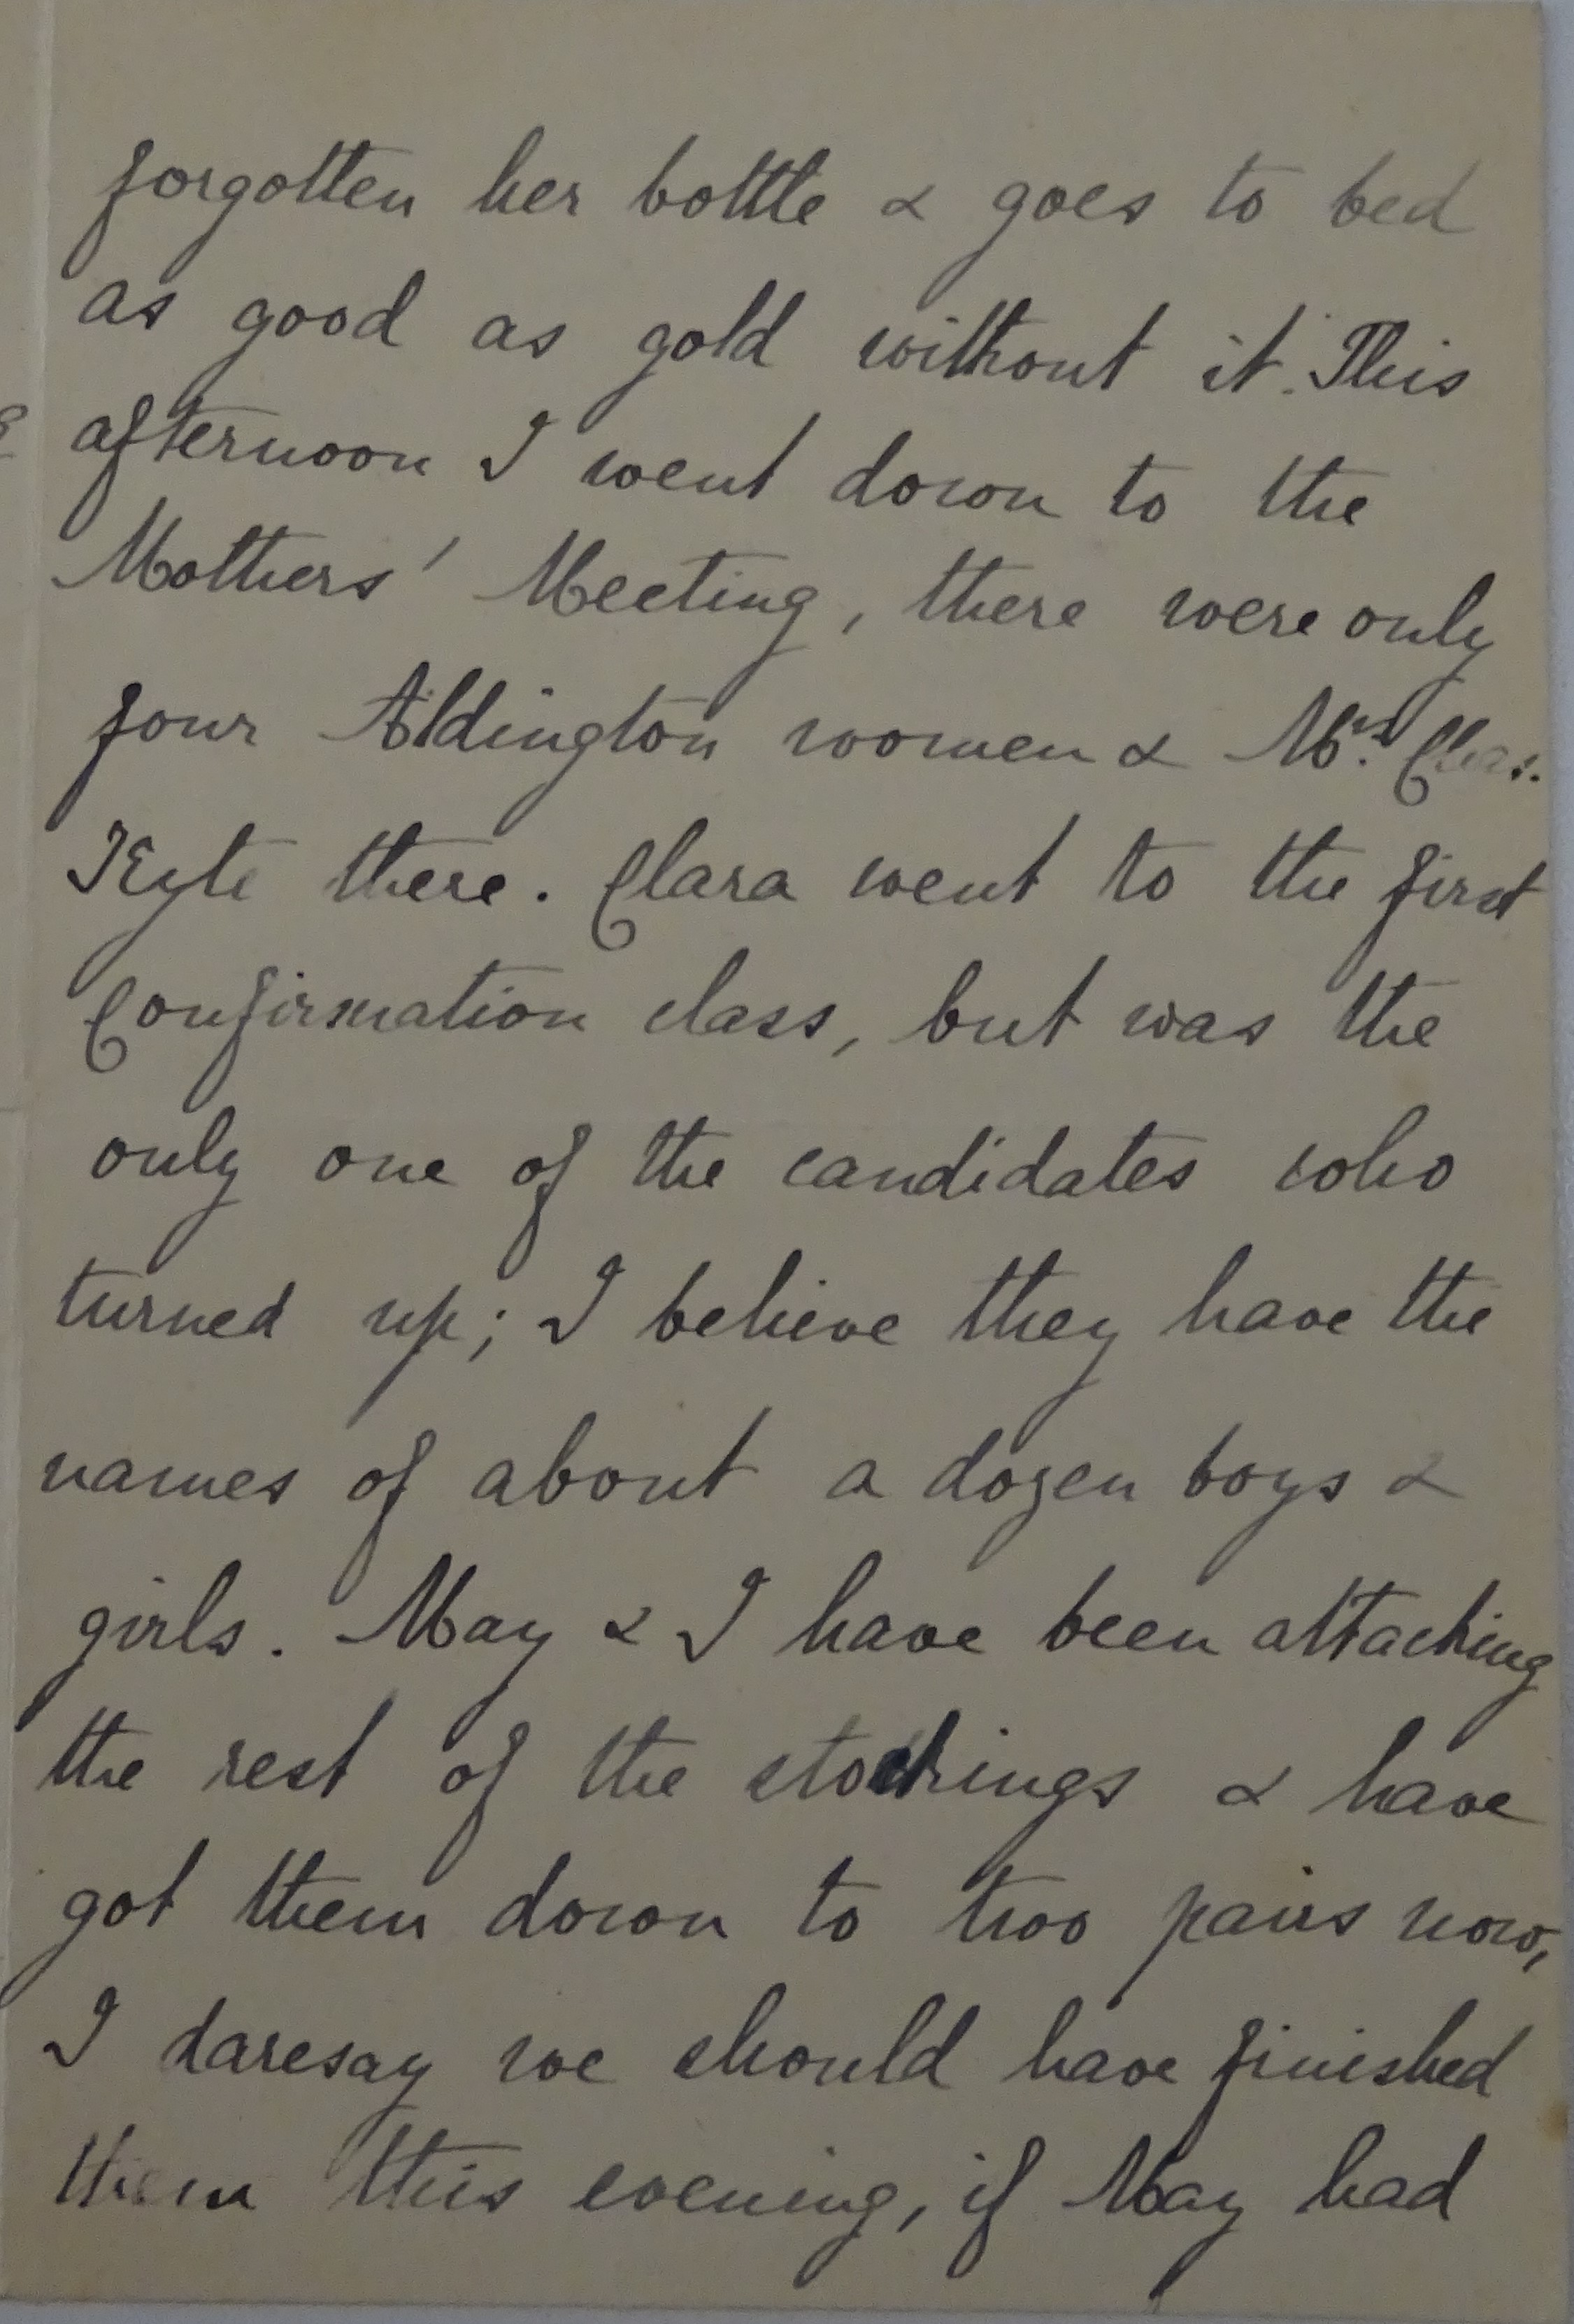 forgotten her bottle & goes to bed
as good as gold without it. This
afternoon I went down to the
Mothers' Meeting, there were only
four Aldington women & Mrs. Chas.
Keyte there. Clara went to the first
Confirmation class, but was the
only one of the candidates who
turned up; I believe they have the
names of about a dozen boys &
girls. May & I have been attacking
the rest of the stockings & have
got them down to two pairs now,
I daresay we should have finished
them this evening, if May had